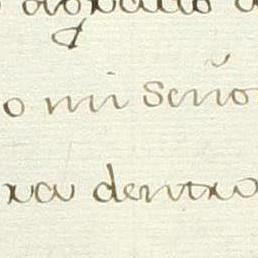 o mi Seño
ra dentro